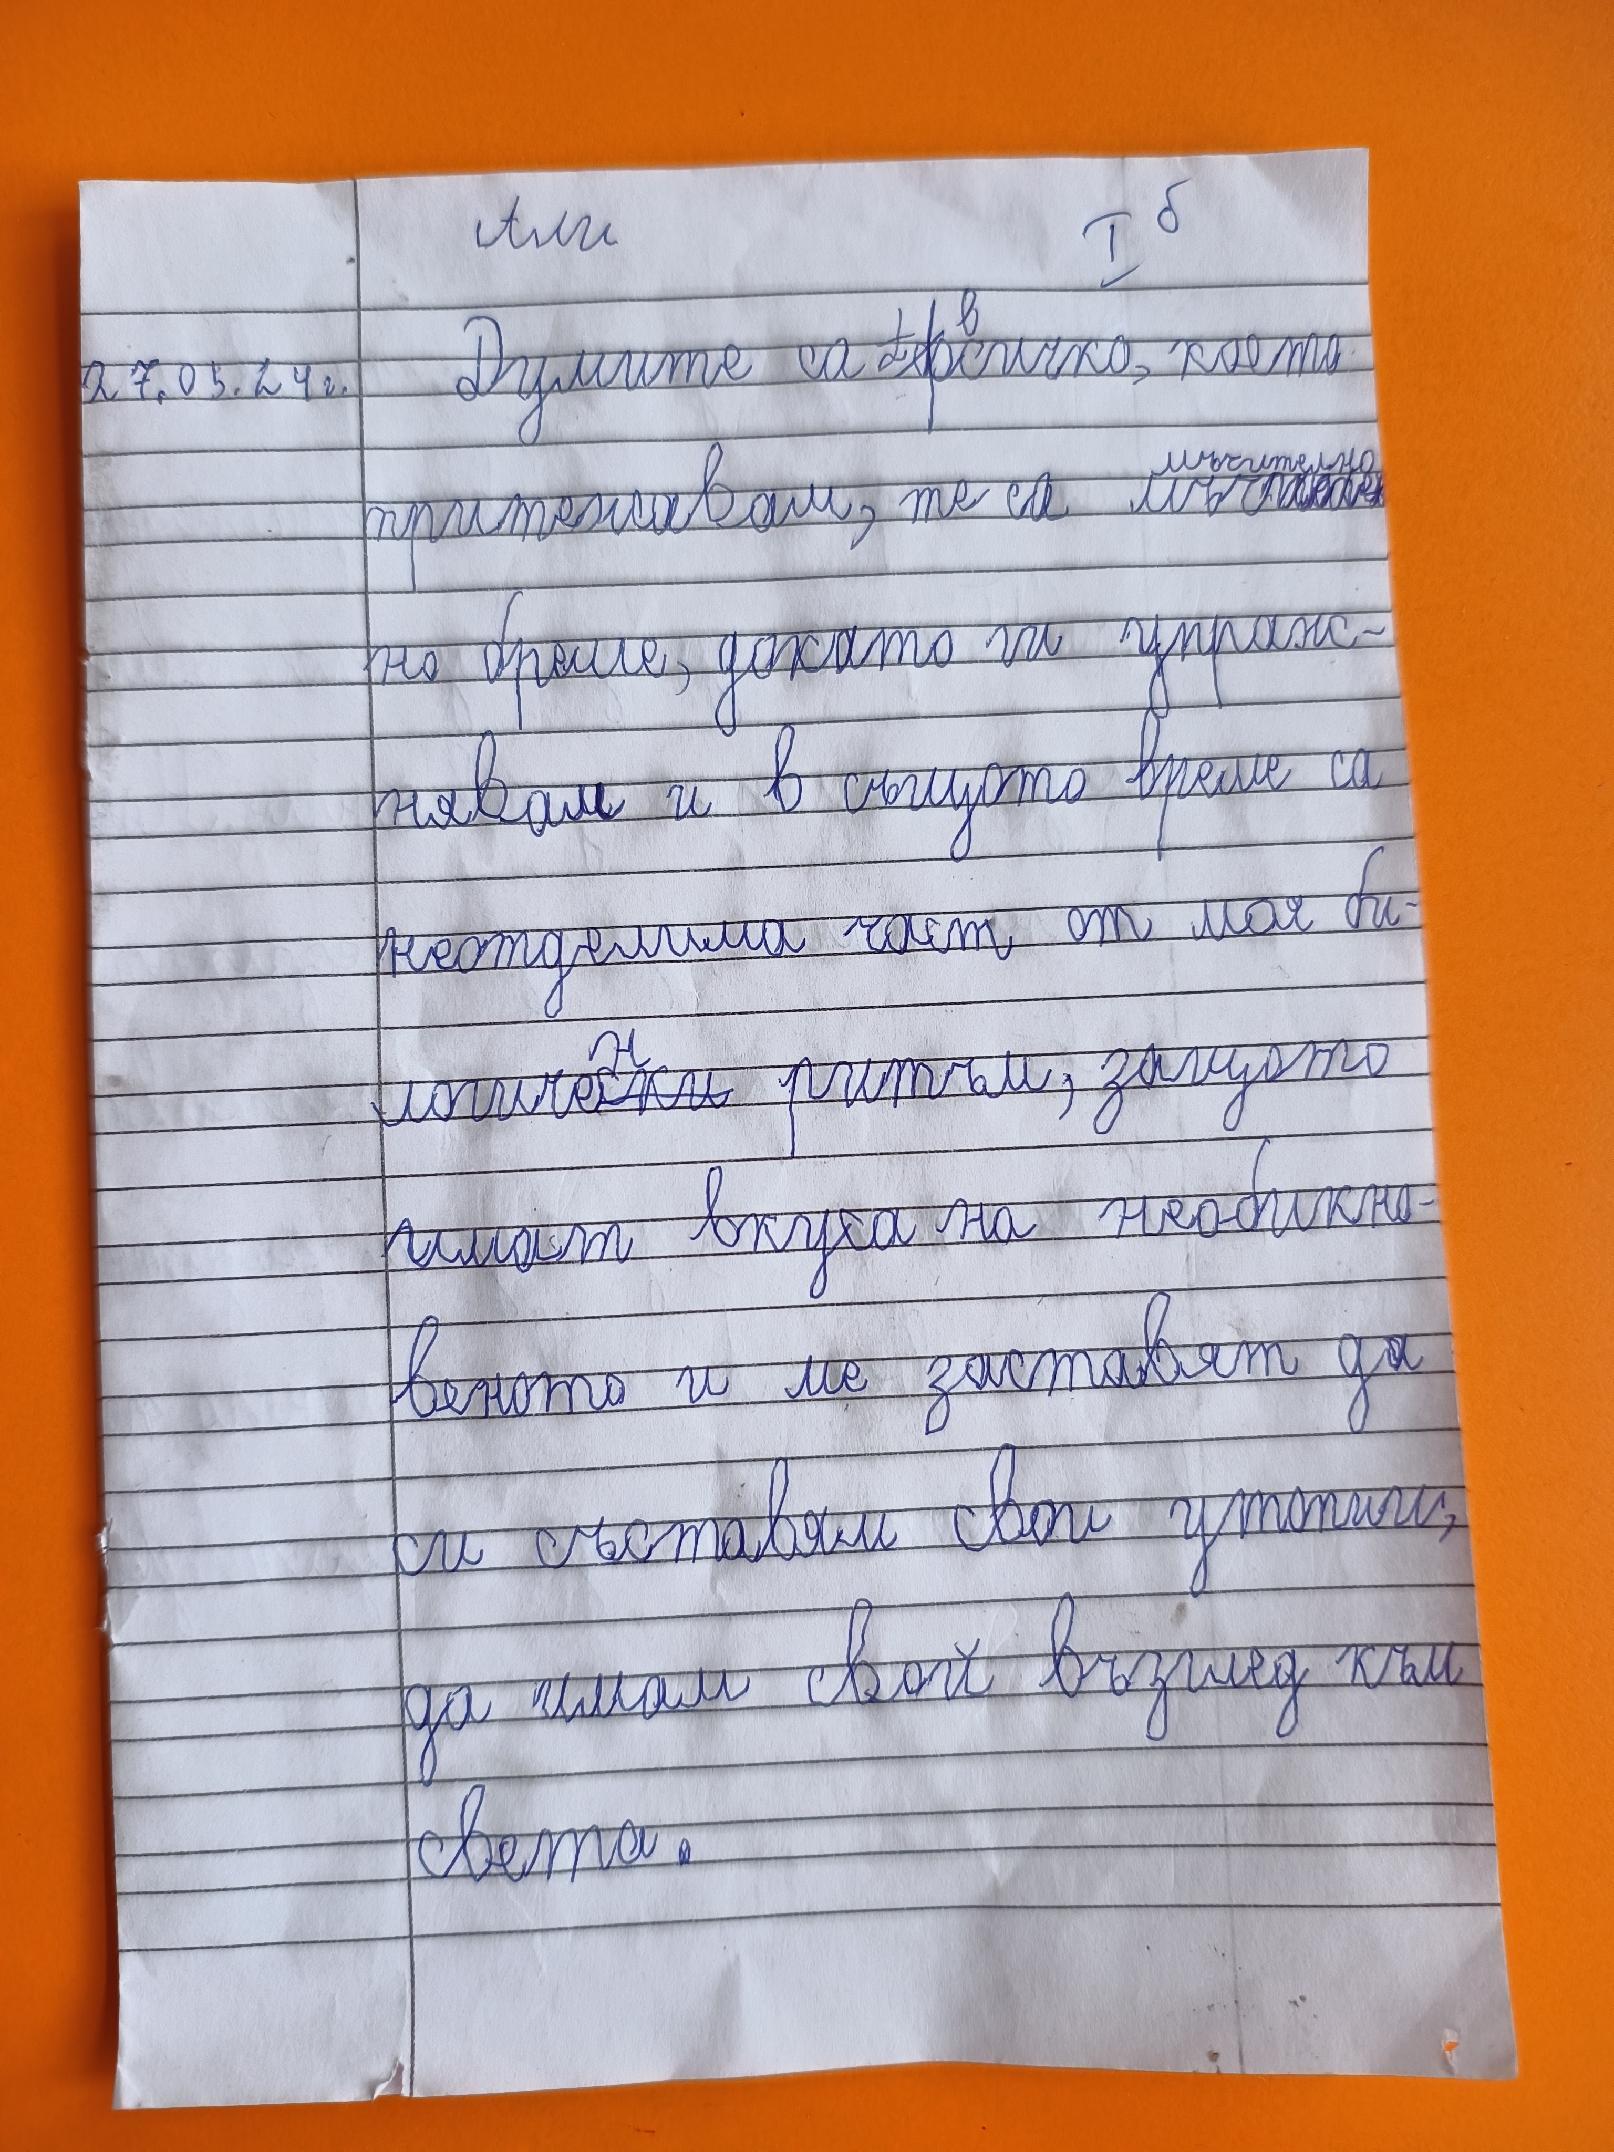 Али I б
27.05.24г. Думите са всичко, което
притежавам, те са мъчително
но бреме, докато ги упраж-
нявам и в същото време са
неотделима част от моя би-
логичен ритъм, защото
имат вкуса на необикно-
веното и ме заставят да
си съставям свои утопии,
да имам свой възглед към
света.